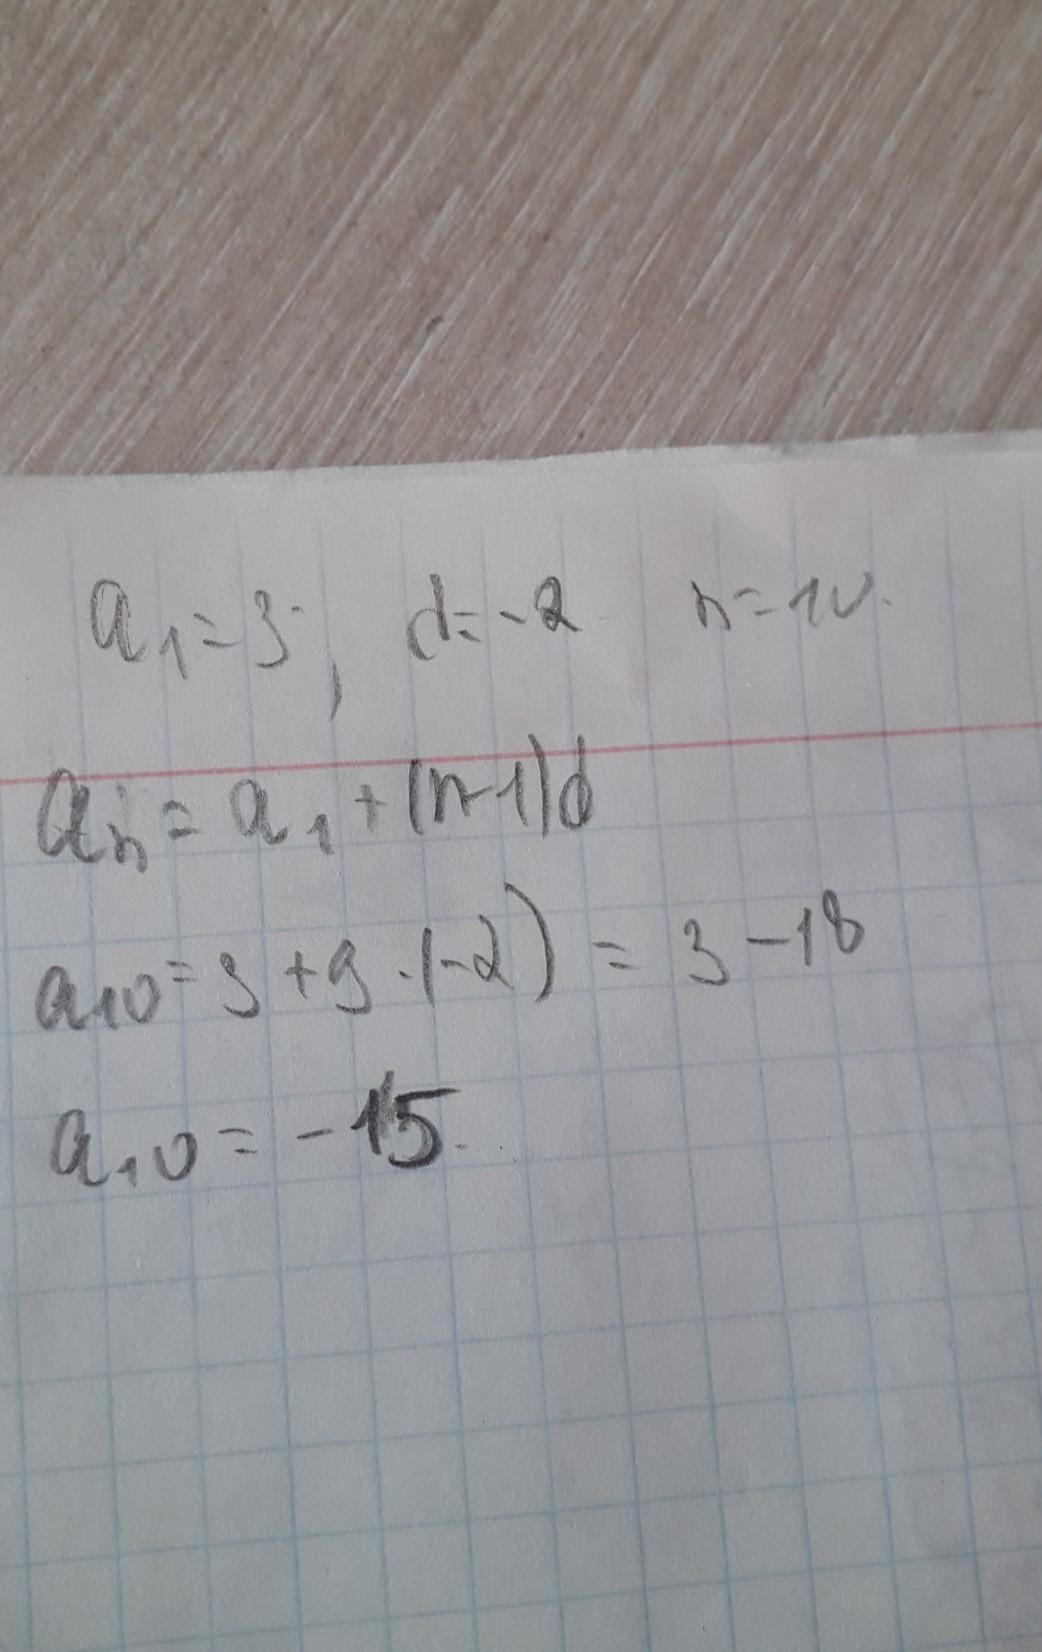 a₁=3, d=-2 n=10.
aₙ=a₁+(n-1)d
a₁₀=3+9·(-2)=3-18
a₁₀=-15.